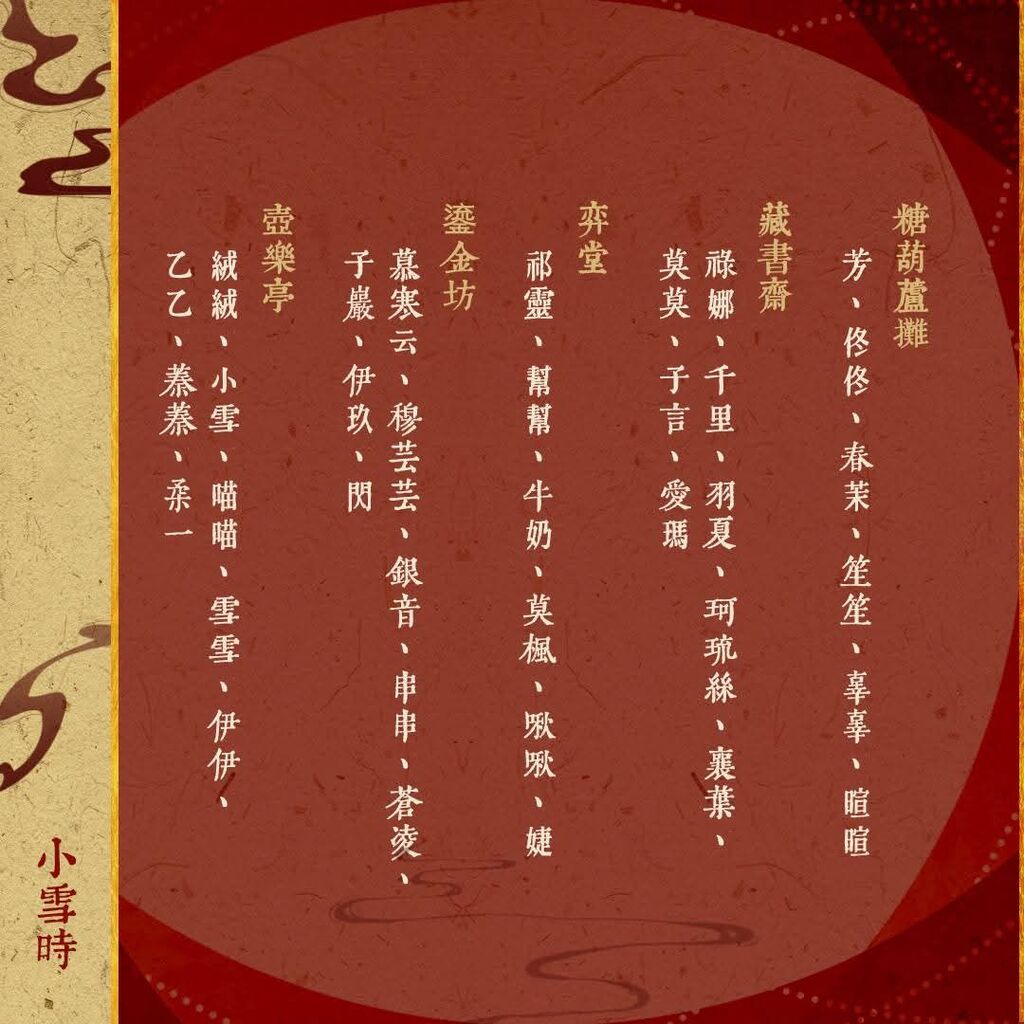 糖葫蘆攤
芳、佟佟、春茉、笙笙、辜辜、暄暄
藏書齋
祿娜、千里、羽夏、珂琉絲、襄葉、
莫莫、子言、愛瑪
弈堂
祁靈、幫幫、牛奶、莫楓、啾啾、婕
鎏金坊
慕寒云、穆芸芸、銀音、串串、蒼淩、
子巖、伊玖、閃
壺樂亭
絨絨、小雪、喵喵、雪雪、伊伊、
乙乙、蓁蓁、柔一
小雪時